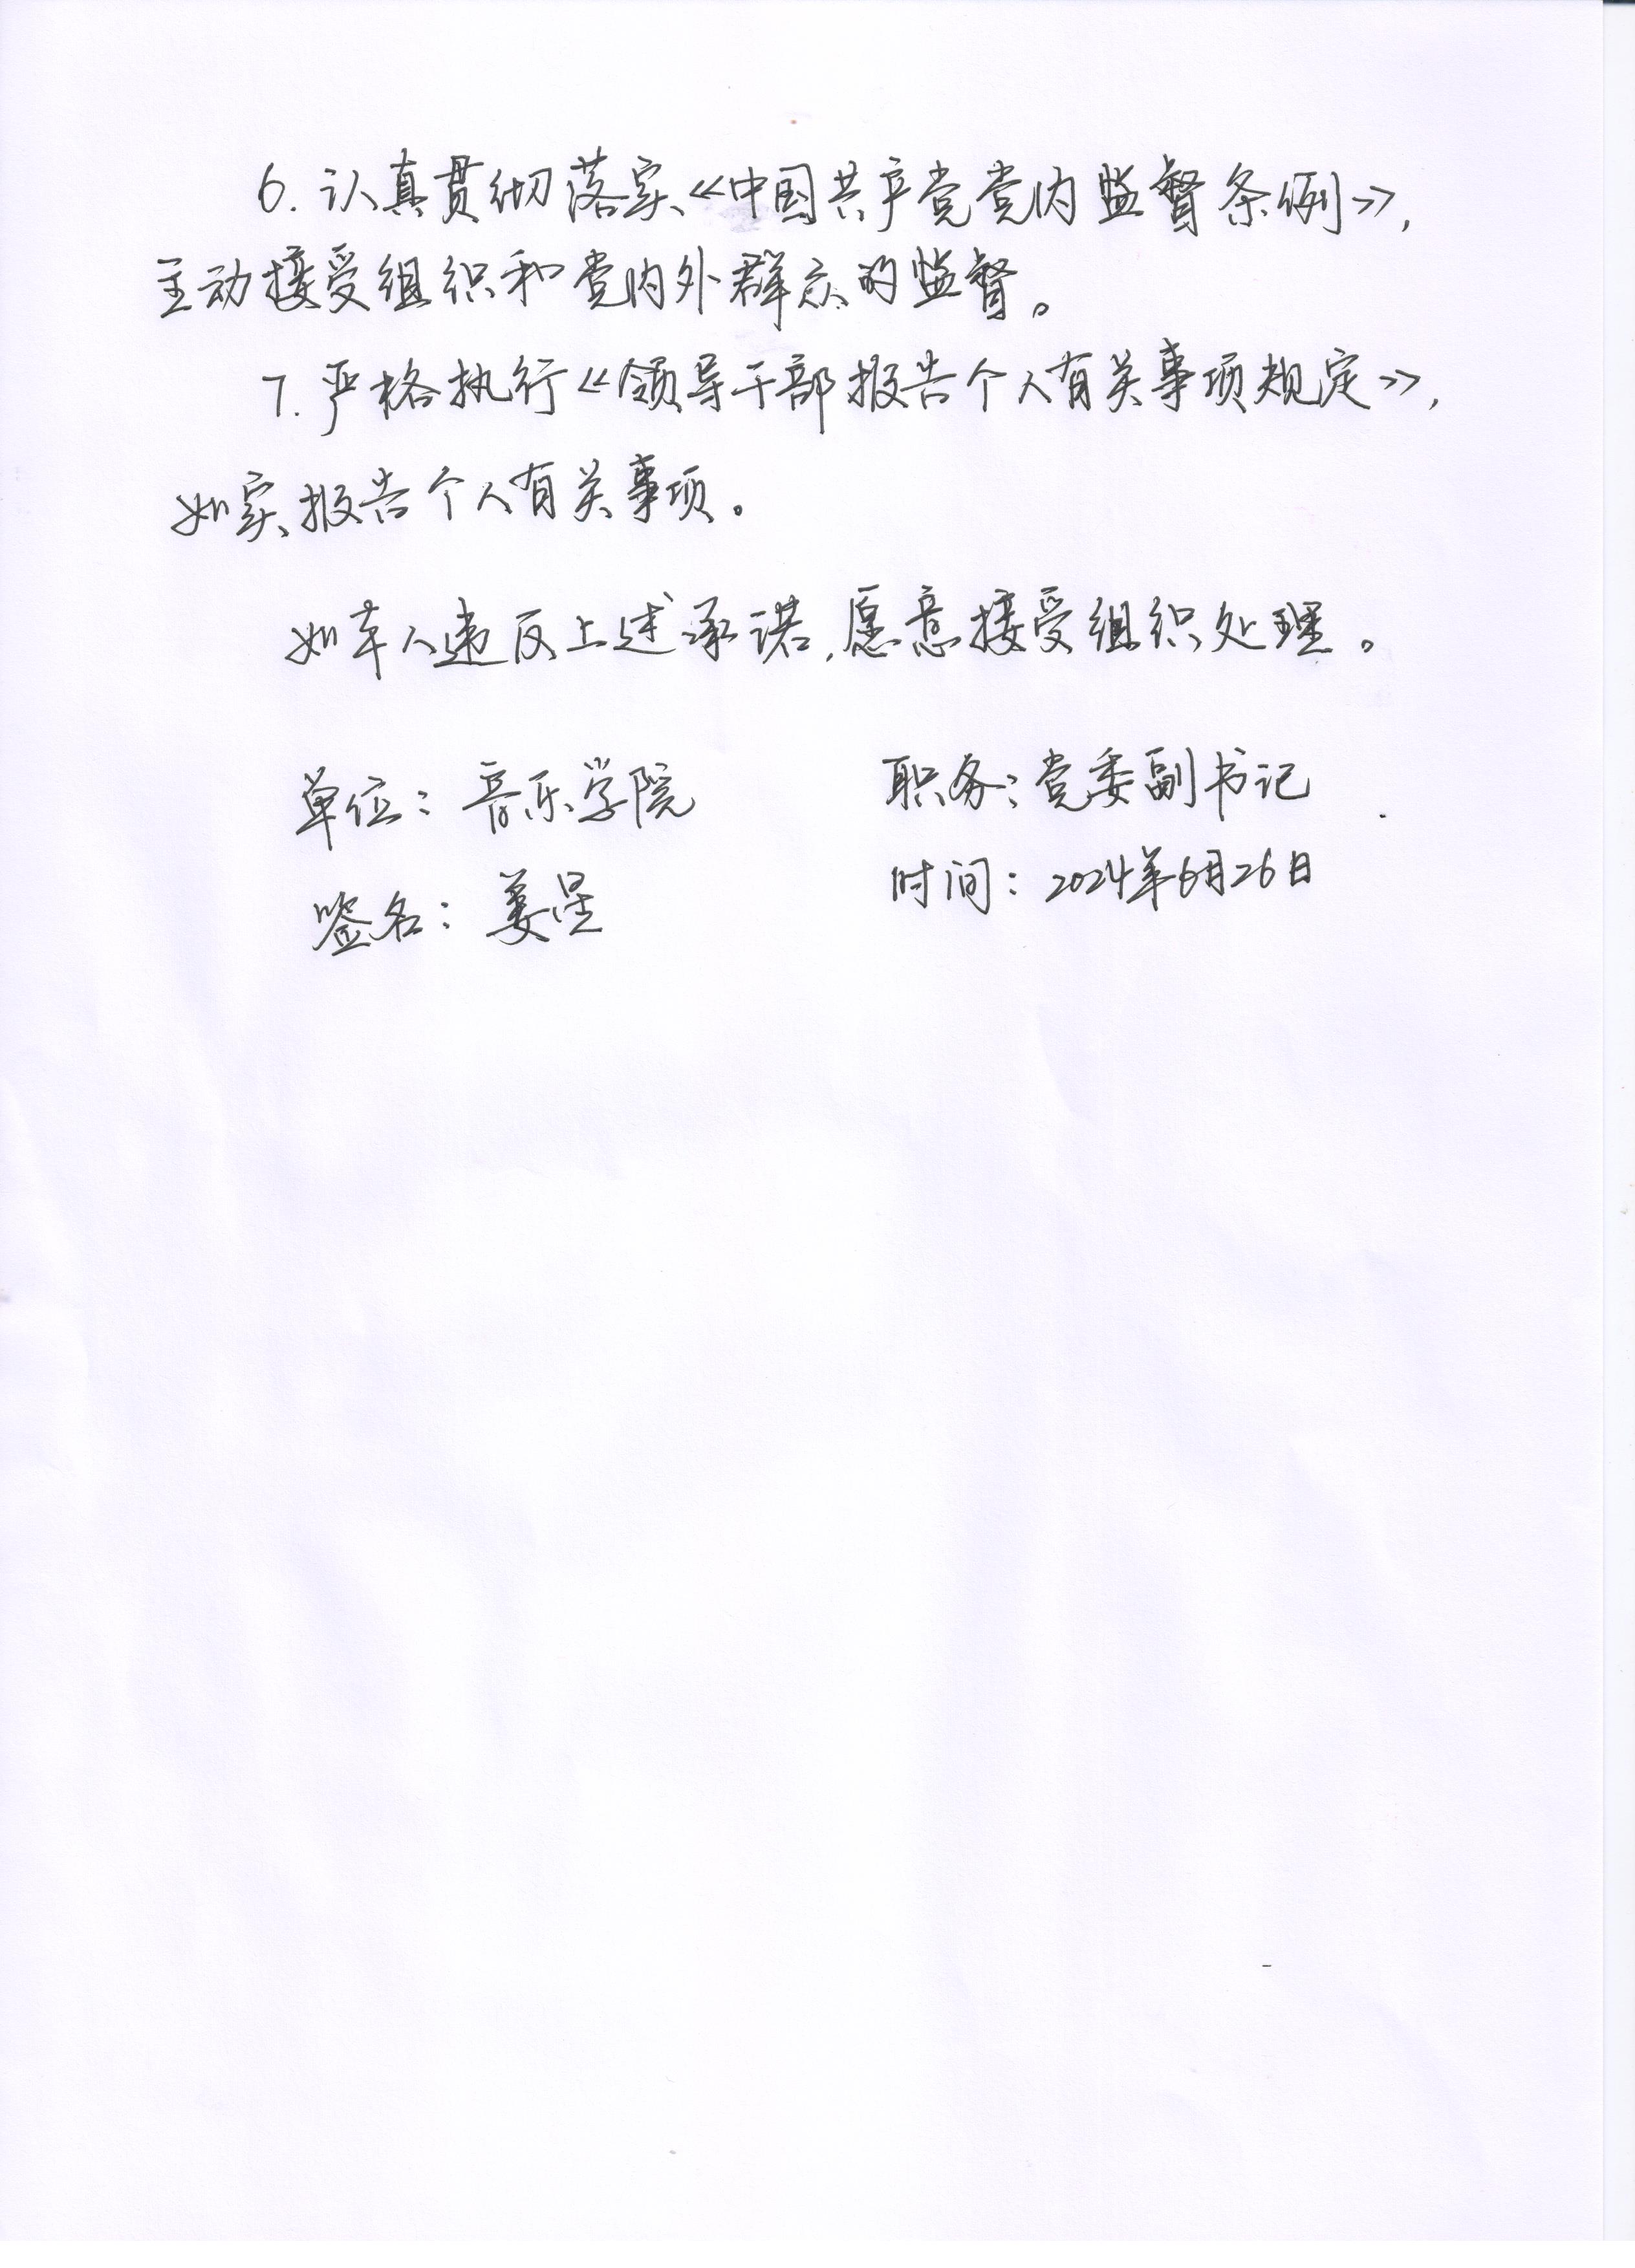 6. 认真贯彻落实《中国共产党党内监督条例》,
主动接受组织和党内外群众的监督。
7. 严格执行《领导干部报告个人有关事项规定》,
如实报告个人有关事项。
如本人违反上述承诺,愿意接受组织处理。
单位: 音乐学院 职务: 党委副书记
签名: 姜星 时间: 2024年6月26日